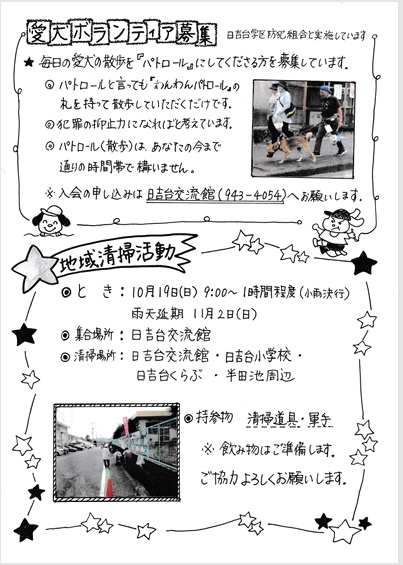 愛犬ボランティア募集 日吉台学区防犯組合と実施しています
★ 毎日の愛犬の散歩を『パトロール』にしてくださる方を募集しています。
◎ パトロールと言っても『わんわんパトロール』の
札を持って散歩していただくだけです。
◎ 犯罪の抑止力になればと考えています。
◎ パトロール(散歩)は、あなたの今まで
通りの時間帯で構いません。
※ 入会の申し込みは 日吉台交流館(943-4054)へお願いします。
地域清掃活動
◎ と き : 10月19日(日) 9:00～1時間程度(小雨決行)
雨天延期 11月2日(日)
◎ 集合場所 : 日吉台交流館
◎ 清掃場所 : 日吉台交流館・日吉台小学校・
日吉台くらぶ ・ 半田池周辺
◎ 持参物 清掃道具・軍手
※ 飲み物はご準備します。
ご協力よろしくお願いします。